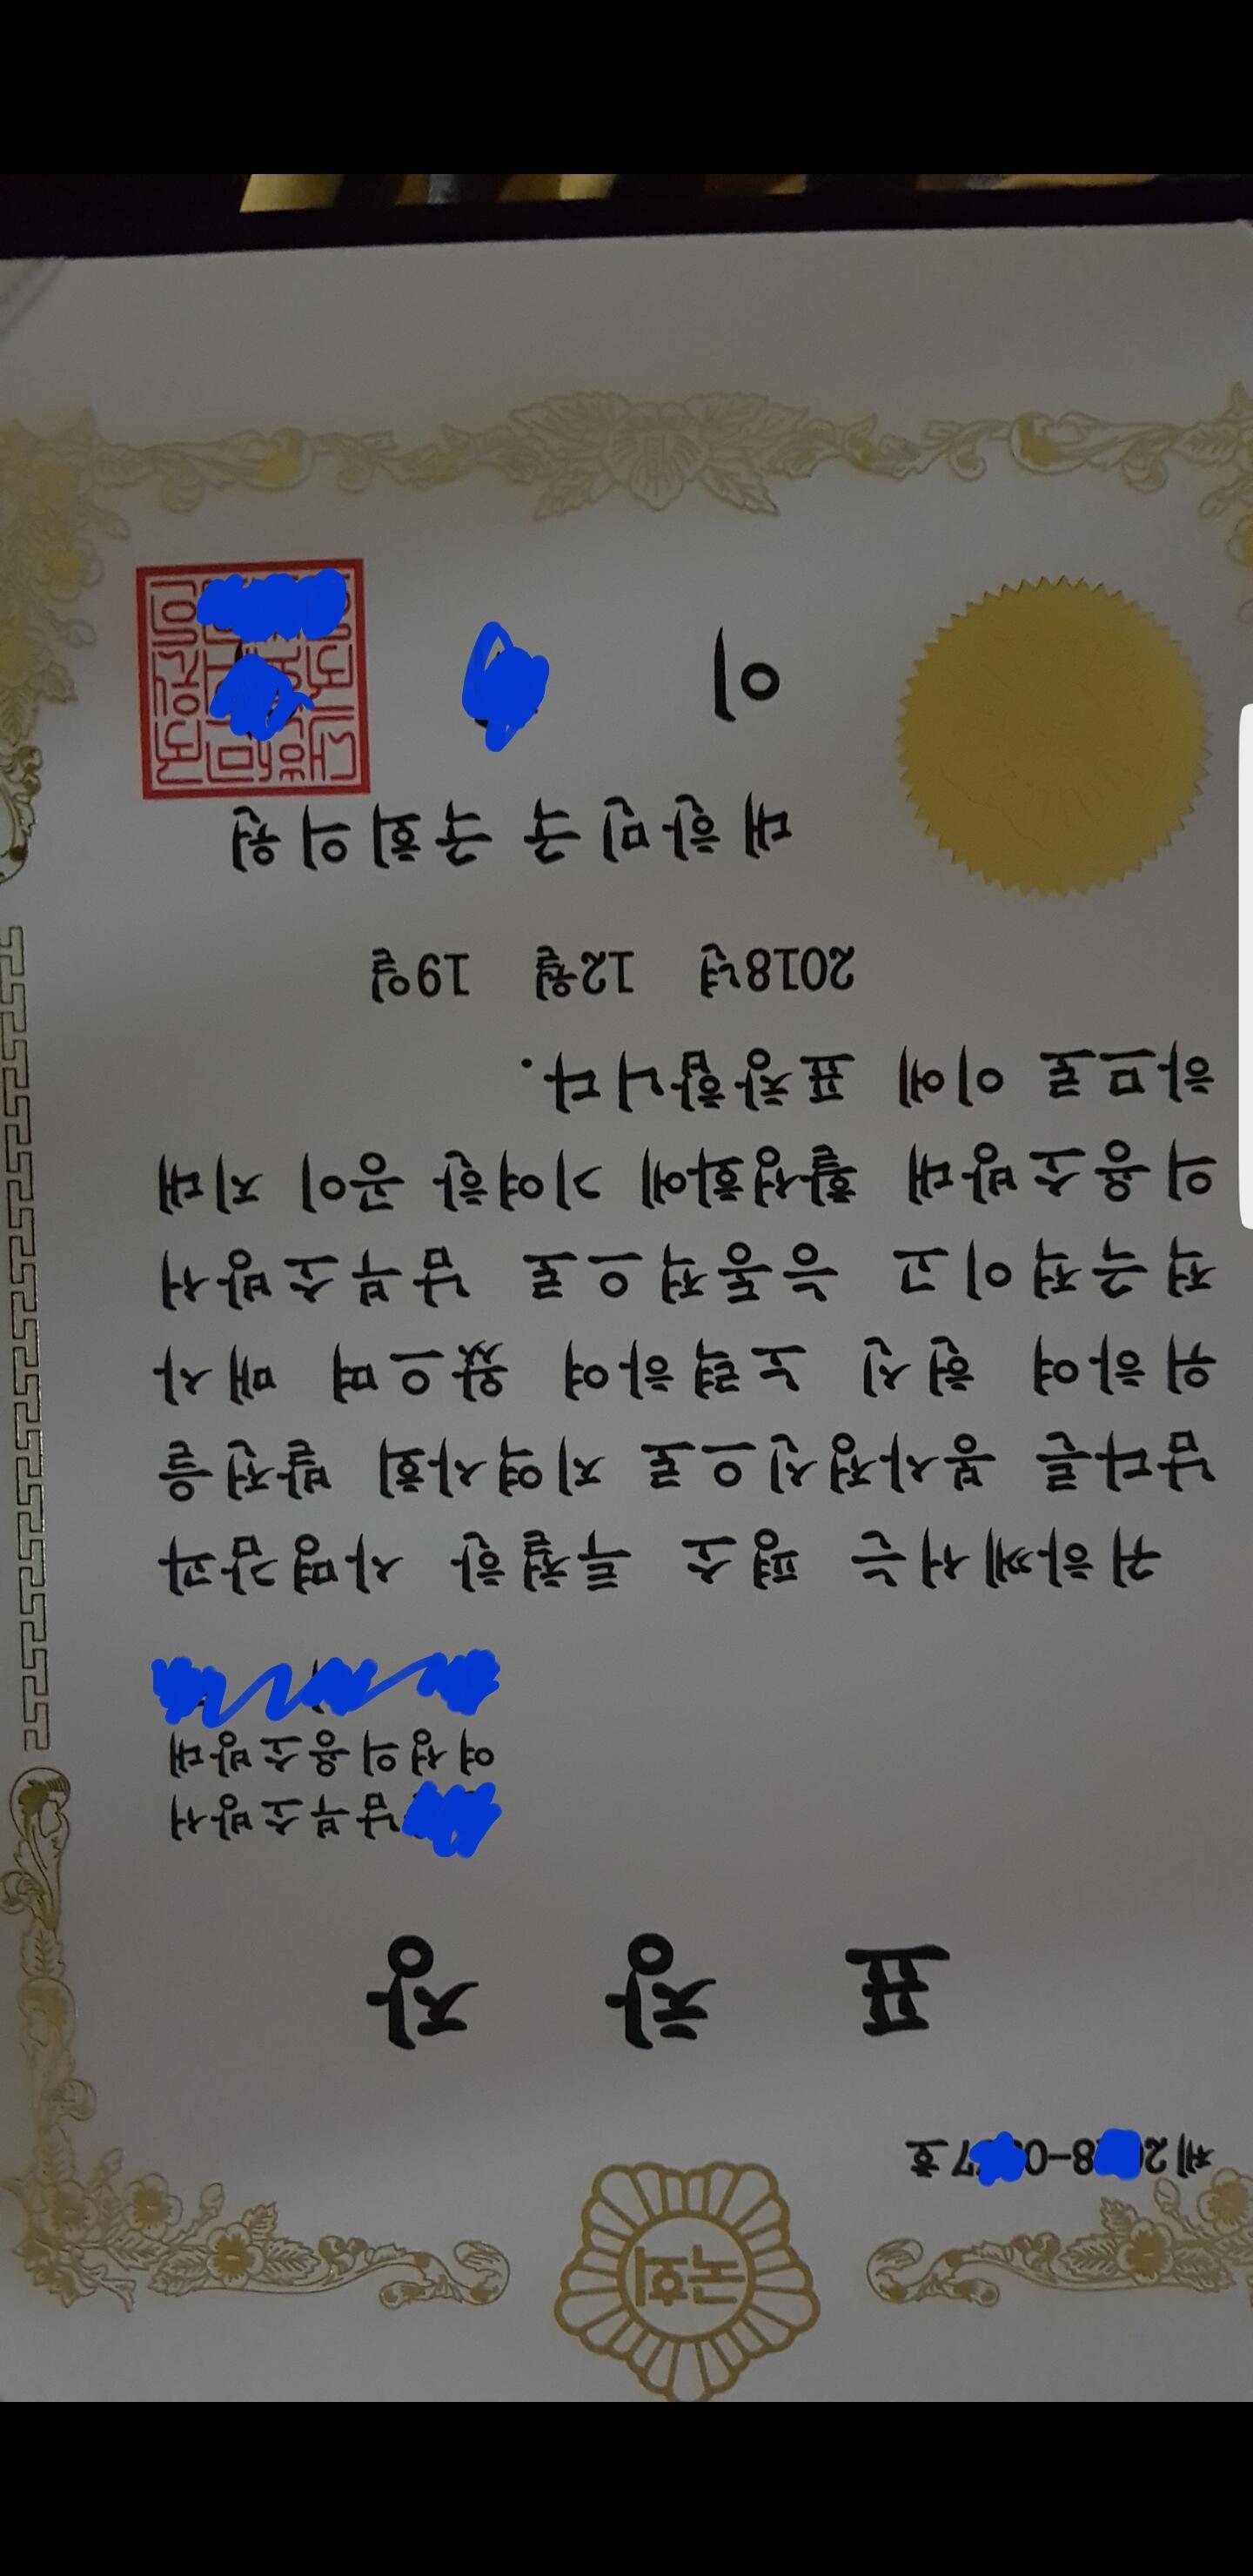 국회
제2 8-0 7호
표 창 장
남부소방서
여성의용소방대
귀하께서는 평소 투철한 사명감과
남다른 봉사정신으로 지역사회 발전을
위하여 헌신 노력하여 왔으며 매사
적극적이고 능동적으로 남부소방서
의용소방대 활성화에 기여한 공이 지대
하므로 이에 표창합니다.
2018년 12월 19일
대한민국 국회의원
이